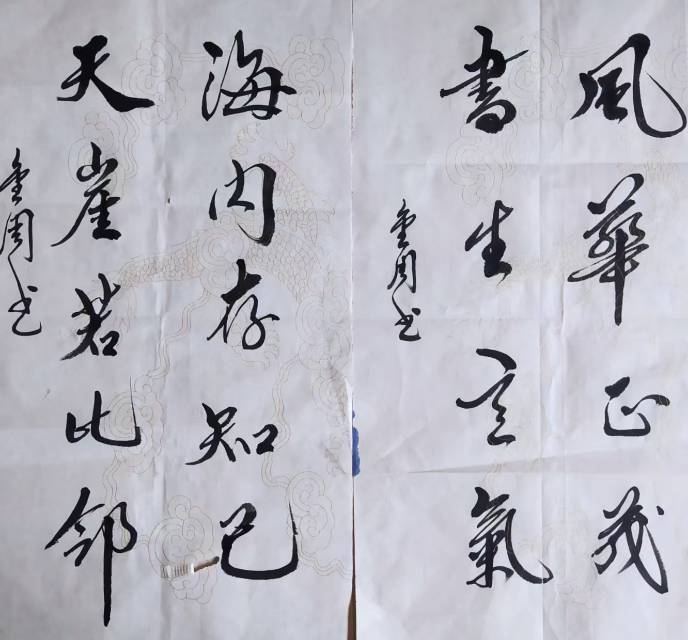 風華正茂
書生意氣
金周书
海内存知己
天崖若比邻
金周书